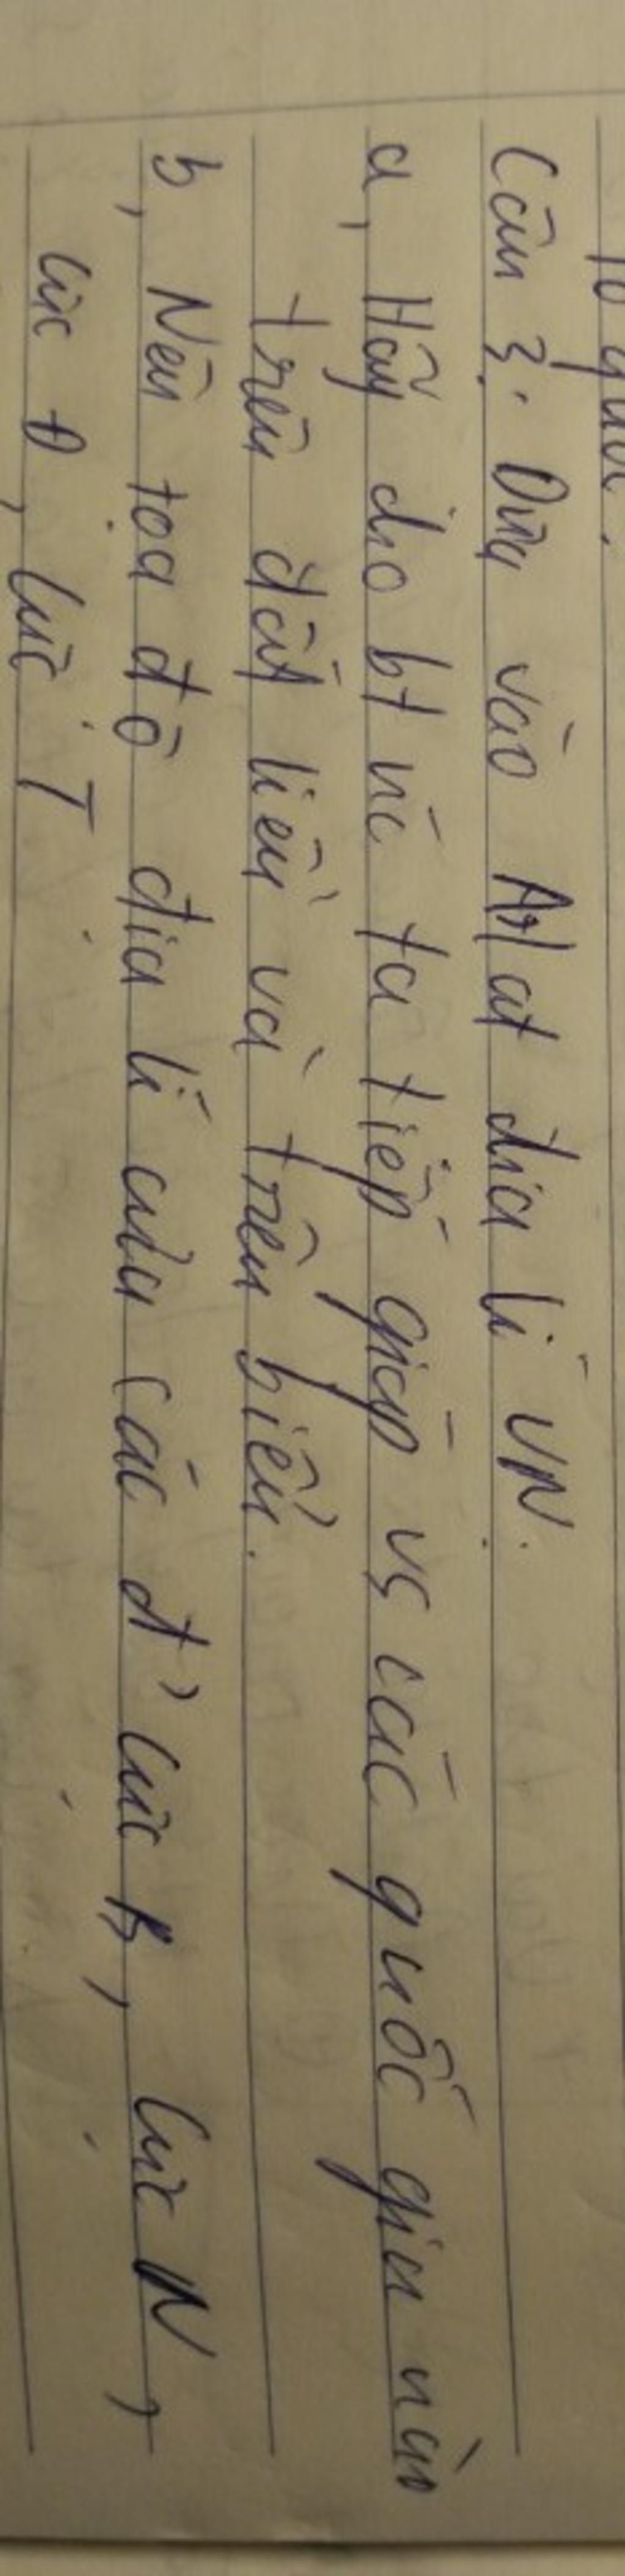 Câu 3: Dựa vào Atlat địa lí VN.
a, Hãy cho bt nc ta tiếp giáp vs các quốc gia nào
trên đất liền và trên biển.
b, Nêu tọa độ địa lí của các đ' cực B, cực N,
cực Đ, cực T